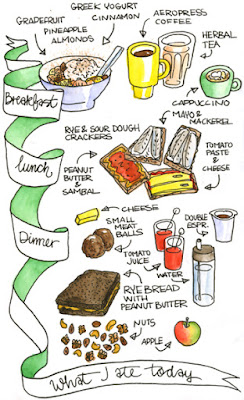 GREEK YOGURT
CINNAMON
GRAPEFRUIT
PINEAPPLE
ALMONDS
AEROPRESS
COFFEE
HERBAL
TEA
CAPPUCCINO
Breakfast
MAYO &
MACKEREL
RYE & SOUR DOUGH
CRACKERS
TOMATO
PASTE
&
CHEESE
lunch
PEANUT
BUTTER
&
SAMBAL
CHEESE
SMALL
MEAT
BALLS
DOUBLE
ESPR.
Dinner
TOMATO
JUICE
WATER
RYE BREAD
WITH
PEANUT BUTTER
NUTS
APPLE
What I ate today